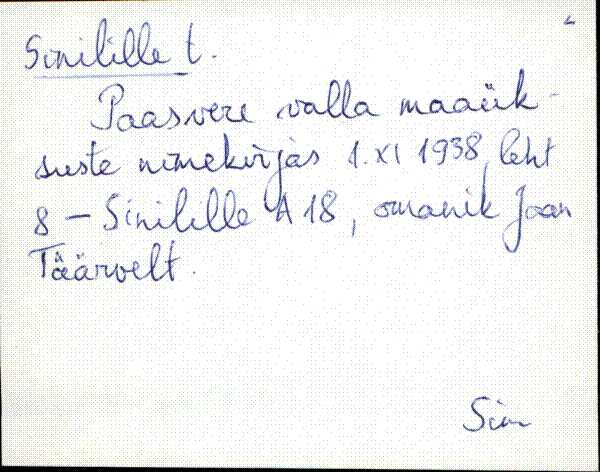 Sinilille t.
Paasvere valla maaük-
suste nimekirjas 1.XI 1938, leht
8 – Sinilille A 18, omanik Jaan
Täärvelt.
Sim